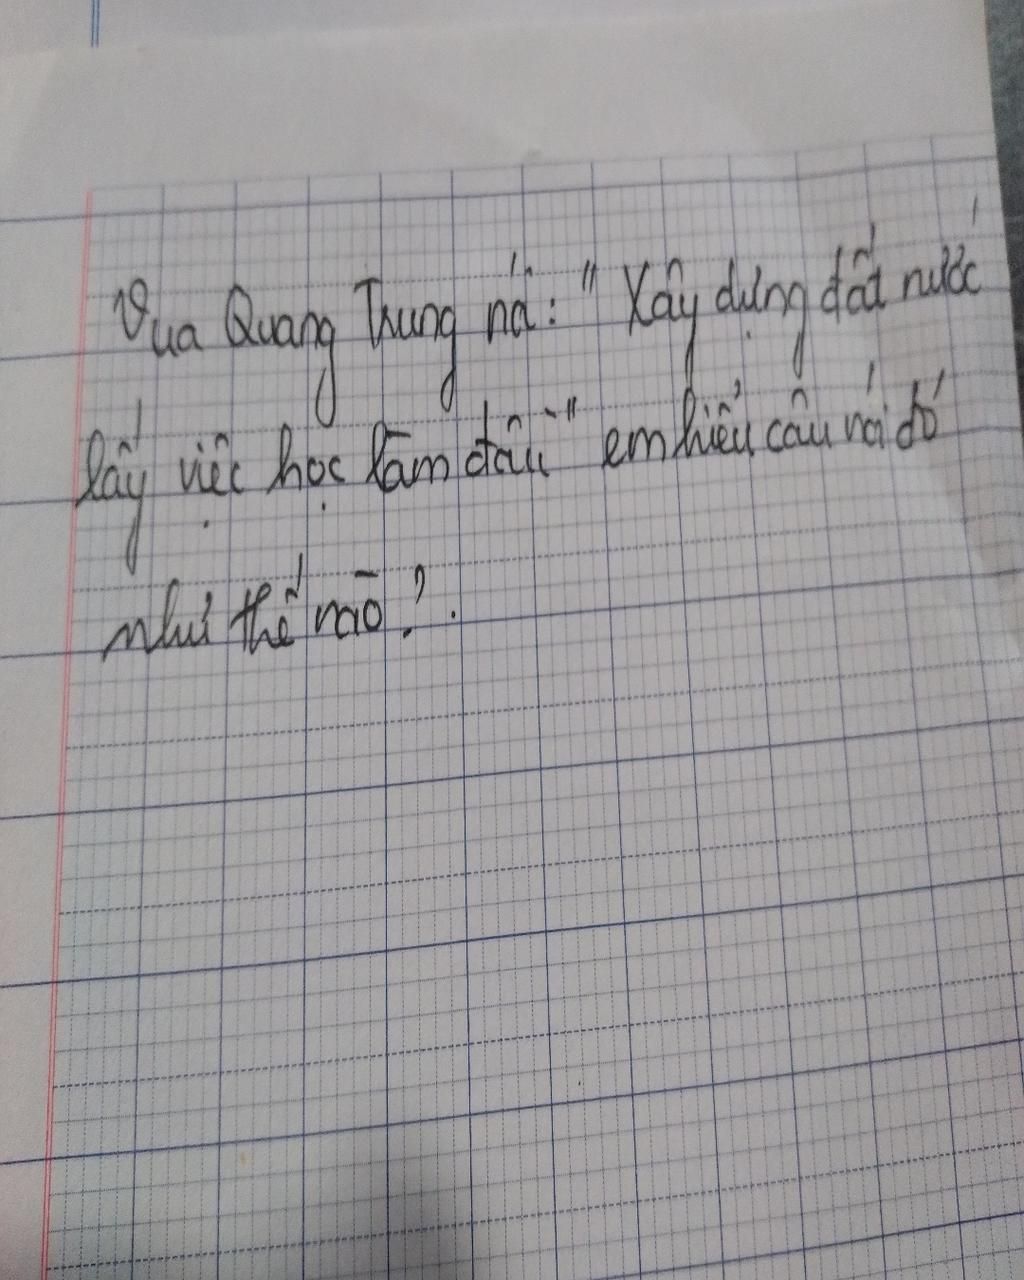 Vua Quang Trung nói: "Xây dựng đất nước
lấy việc học làm đầu" em hiểu câu nói đó
như thế nào?.